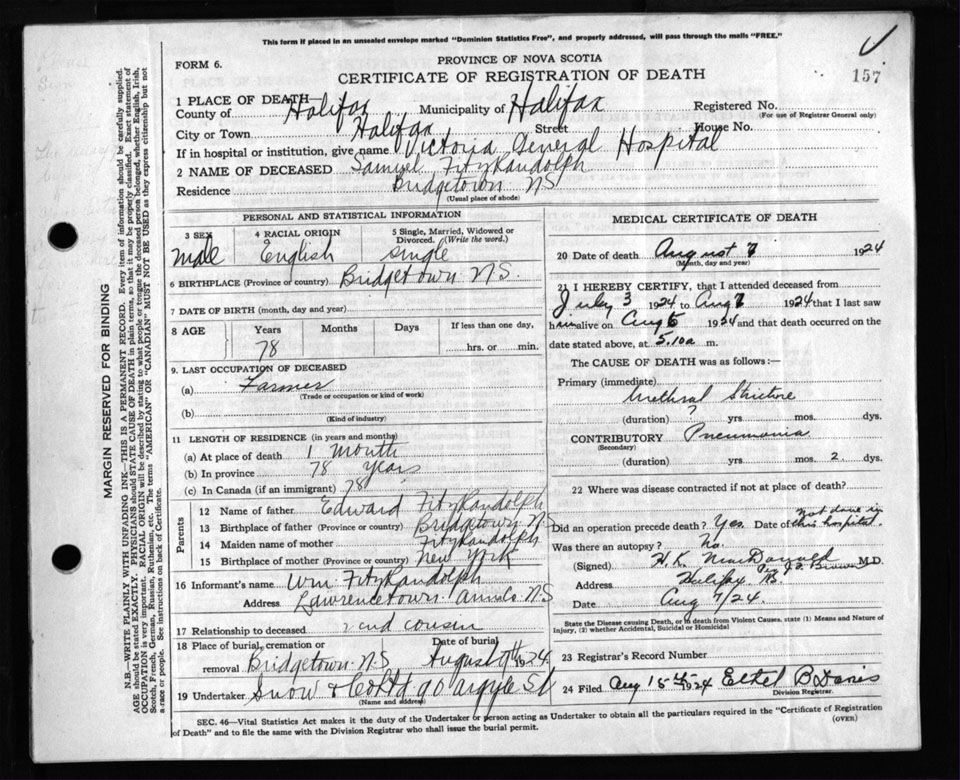 This form if placed in an unsealed envelope marked "Dominion Statistics Free", and properly addressed, will pass through the mails "FREE."
FORM 6.
PROVINCE OF NOVA SCOTIA
CERTIFICATE OF REGISTRATION OF DEATH
157
1 PLACE OF DEATH—
County of Halifax Municipality of Halifax Registered No.
(For use of Registrar General only)
City or Town Halifax Street House No.
If in hospital or institution, give name Victoria General Hospital
2 NAME OF DECEASED Samuel FitzRandolph
Residence Bridgetown NS
(Usual place of abode)
PERSONAL AND STATISTICAL INFORMATION
3 SEX 4 RACIAL ORIGIN 5 Single, Married, Widowed or Divorced. (Write the word.)
male English single
6 BIRTHPLACE (Province or country) Bridgetown N.S.
7 DATE OF BIRTH (month, day and year)
8 AGE Years Months Days If less than one day,
78 hrs. or min.
9. LAST OCCUPATION OF DECEASED
(a) Farmer
(Trade or occupation or kind of work)
(b)
(Kind of industry)
11 LENGTH OF RESIDENCE (in years and months)
(a) At place of death 1 Month
(b) In province 78 years
(c) In Canada (if an immigrant) 78
Parents
12 Name of father Edward FitzRandolph
13 Birthplace of father (Province or country) Bridgetown NS
14 Maiden name of mother FitzRandolph
15 Birthplace of mother (Province or country) New York
16 Informant's name Wm FitzRandolph
Address Lawrencetown Annals NS
17 Relationship to deceased 2nd cousin
18 Place of burial, cremation or removal Bridgetown N.S. Date of burial August 9th 1924
19 Undertaker Snow & Co Ltd 90 Argyle St
(Name and address)
MEDICAL CERTIFICATE OF DEATH
20 Date of death August 7 1924
(Month, day and year)
21 I HEREBY CERTIFY, that I attended deceased from
July 3 1924 to Aug 7 1924 that I last saw
him alive on Aug 6 1924 and that death occurred on the
date stated above, at 5.10a m.
The CAUSE OF DEATH was as follows:—
Primary (immediate)
Urethral Stricture
(duration) ? yrs. mos. dys.
CONTRIBUTORY Pneumonia
(Secondary)
(duration) yrs. mos. 2 dys.
22 Where was disease contracted if not at place of death?
Did an operation precede death? Yes. Date of not done in this hospital.
Was there an autopsy? No.
(Signed) H. K. MacDonald M.D.
Address Halifax NS.
Date Aug 7/24.
State the Disease causing Death, or in death from Violent Causes, state (1) Means and Nature of
Injury, (2) whether Accidental, Suicidal or Homicidal
23 Registrar's Record Number
24 Filed Aug 15th 1924 Ethel B Davis
Division Registrar.
SEC. 46—Vital Statistics Act makes it the duty of the Undertaker or person acting as Undertaker to obtain all the particulars required in the "Certificate of Registration
of Death" and to file the same with the Division Registrar who shall issue the burial permit.
(OVER)
MARGIN RESERVED FOR BINDING
N.B.—WRITE PLAINLY WITH UNFADING INK—THIS IS A PERMANENT RECORD. Every item of information should be carefully supplied.
AGE should be stated EXACTLY. PHYSICIANS should STATE CAUSE OF DEATH in plain terms, so that it may be properly classified. Exact statement of
OCCUPATION is very important. RACIAL ORIGIN will be described by stating to what people or tongue the deceased person belonged, whether English, Irish,
Scotch, French, German, Russian, Ruthenian, etc. The terms "AMERICAN" or "CANADIAN" MUST NOT BE USED as they express citizenship but not
a race or people. See instructions on back of Certificate.